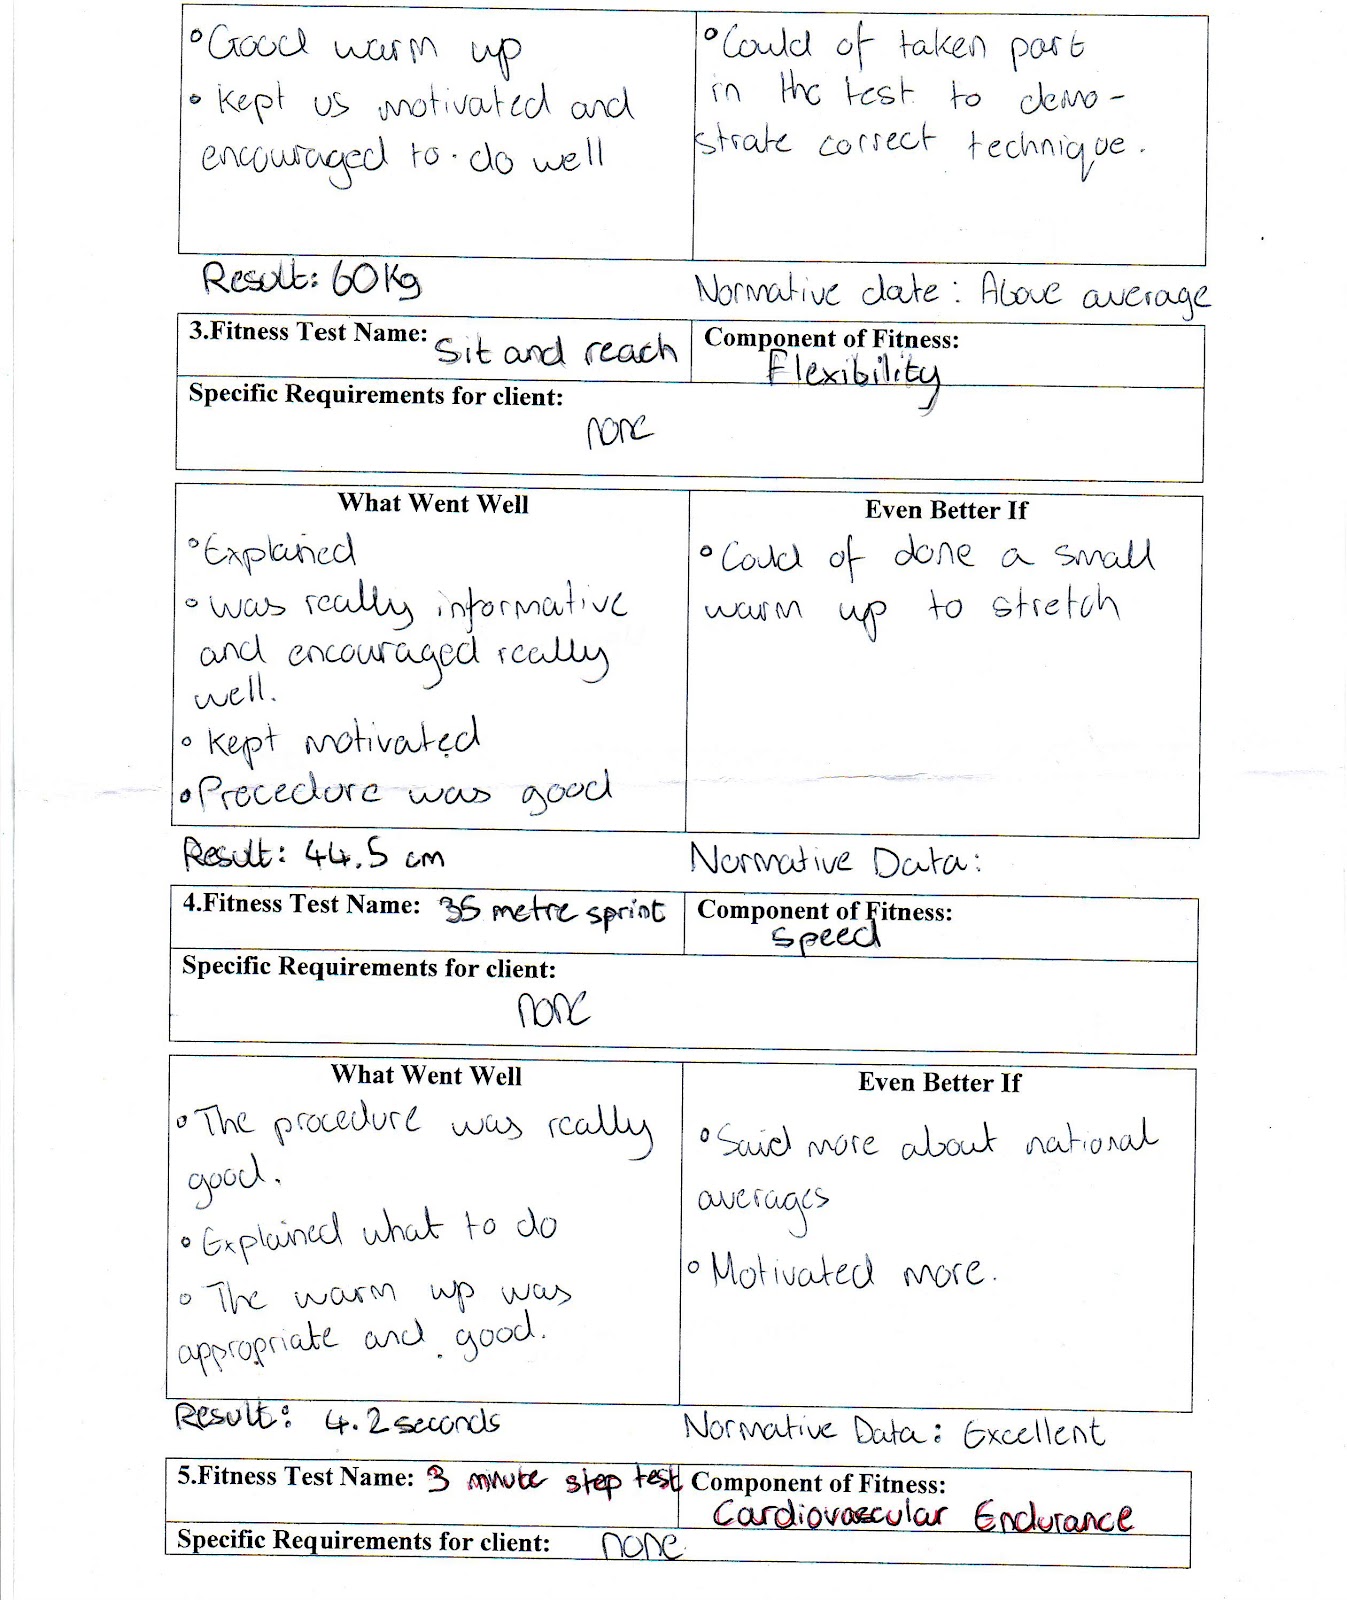 °Good warm up
• Kept us motivated and
encouraged to do well
°Could of taken part
in the test to demo-
strate correct technique.
Result: 60Kg
Normative date: Above average
3.Fitness Test Name: Sit and reach
Component of Fitness:
Flexibility
Specific Requirements for client:
none
What Went Well
°Explained
° was really informative
and encouraged really
well.
° Kept motivated
•Procedure was good
Even Better If
° Could of done a small
warm up to stretch
Result: 44.5 cm
Normative Data:
4.Fitness Test Name: 35 metre sprint
Component of Fitness:
Speed
Specific Requirements for client:
none
What Went Well
° The procedure was really
good.
° Explained what to do
° The warm up was
appropriate and good.
Even Better If
° Said more about national
averages
° Motivated more.
Result: 4.2 seconds
Normative Data: Excellent
5.Fitness Test Name: 3 minute step test
Component of Fitness:
Cardiovascular Endurance
Specific Requirements for client: none